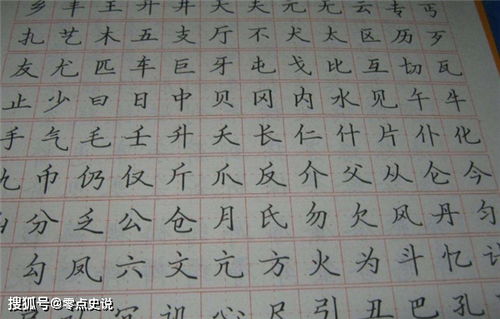 乡 丰 王 元 无 云 专 丐
扎 艺 木 五 支 厅 不 犬 太 区 历 歹
友 尤 匹 车 巨 牙 屯 戈 比 互 切 瓦
止 少 曰 日 中 贝 冈 内 水 见 午 牛
手 气 毛 壬 升 夭 长 仁 什 片 仆 化
币 仍 仅 斤 爪 反 介 父 从 仑 今
分 乏 公 仓 月 氏 勿 欠 风 丹 匀
勾 凤 六 文 亢 方 火 为 斗 忆
心 尺 引 丑 巴 孔
搜狐号@零点史说